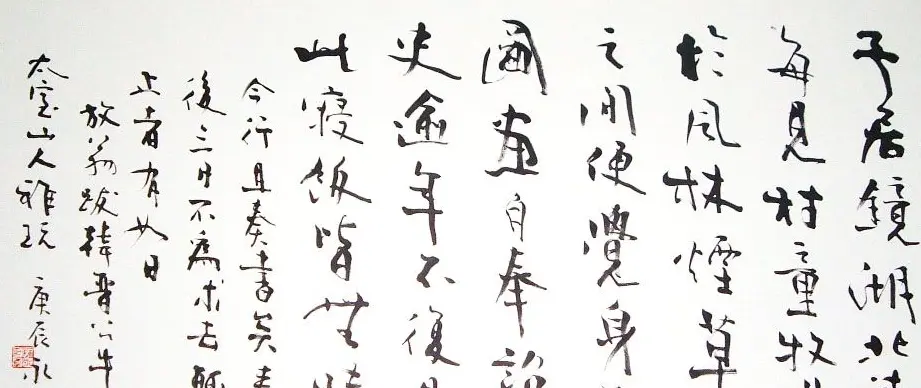 予居鏡湖北
每見村童牧
於風林煙草
之間便覺身
圖畫自奉詔
史逾年不復
此寢飯皆無
今行且奏書矣奏
後三日不為求去
止者有如日
放翁跋韓晉公牛
太室山人雅玩 庚辰永